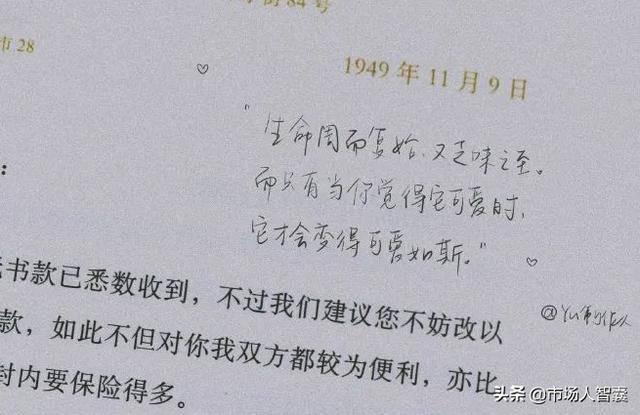 街84号
市28
1949年11月9日
"生命周而复始、又乏味之至。
而只有当你觉得它可爱时,
它才会变得可爱如斯。"
:
书款已悉数收到，不过我们建议您不妨改以
款，如此不但对你我双方都较为便利，亦比
封内要保险得多。
头条 @市场人智囊